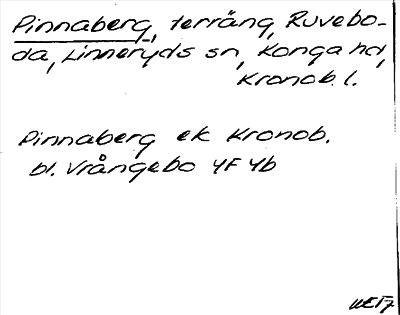 Pinnaberg, terräng, Ruvebo-
da, Linneryds sn, Konga hd,
Kronob. l.
Pinnaberg ek Kronob.
bl. Vrångebo 4F 4b